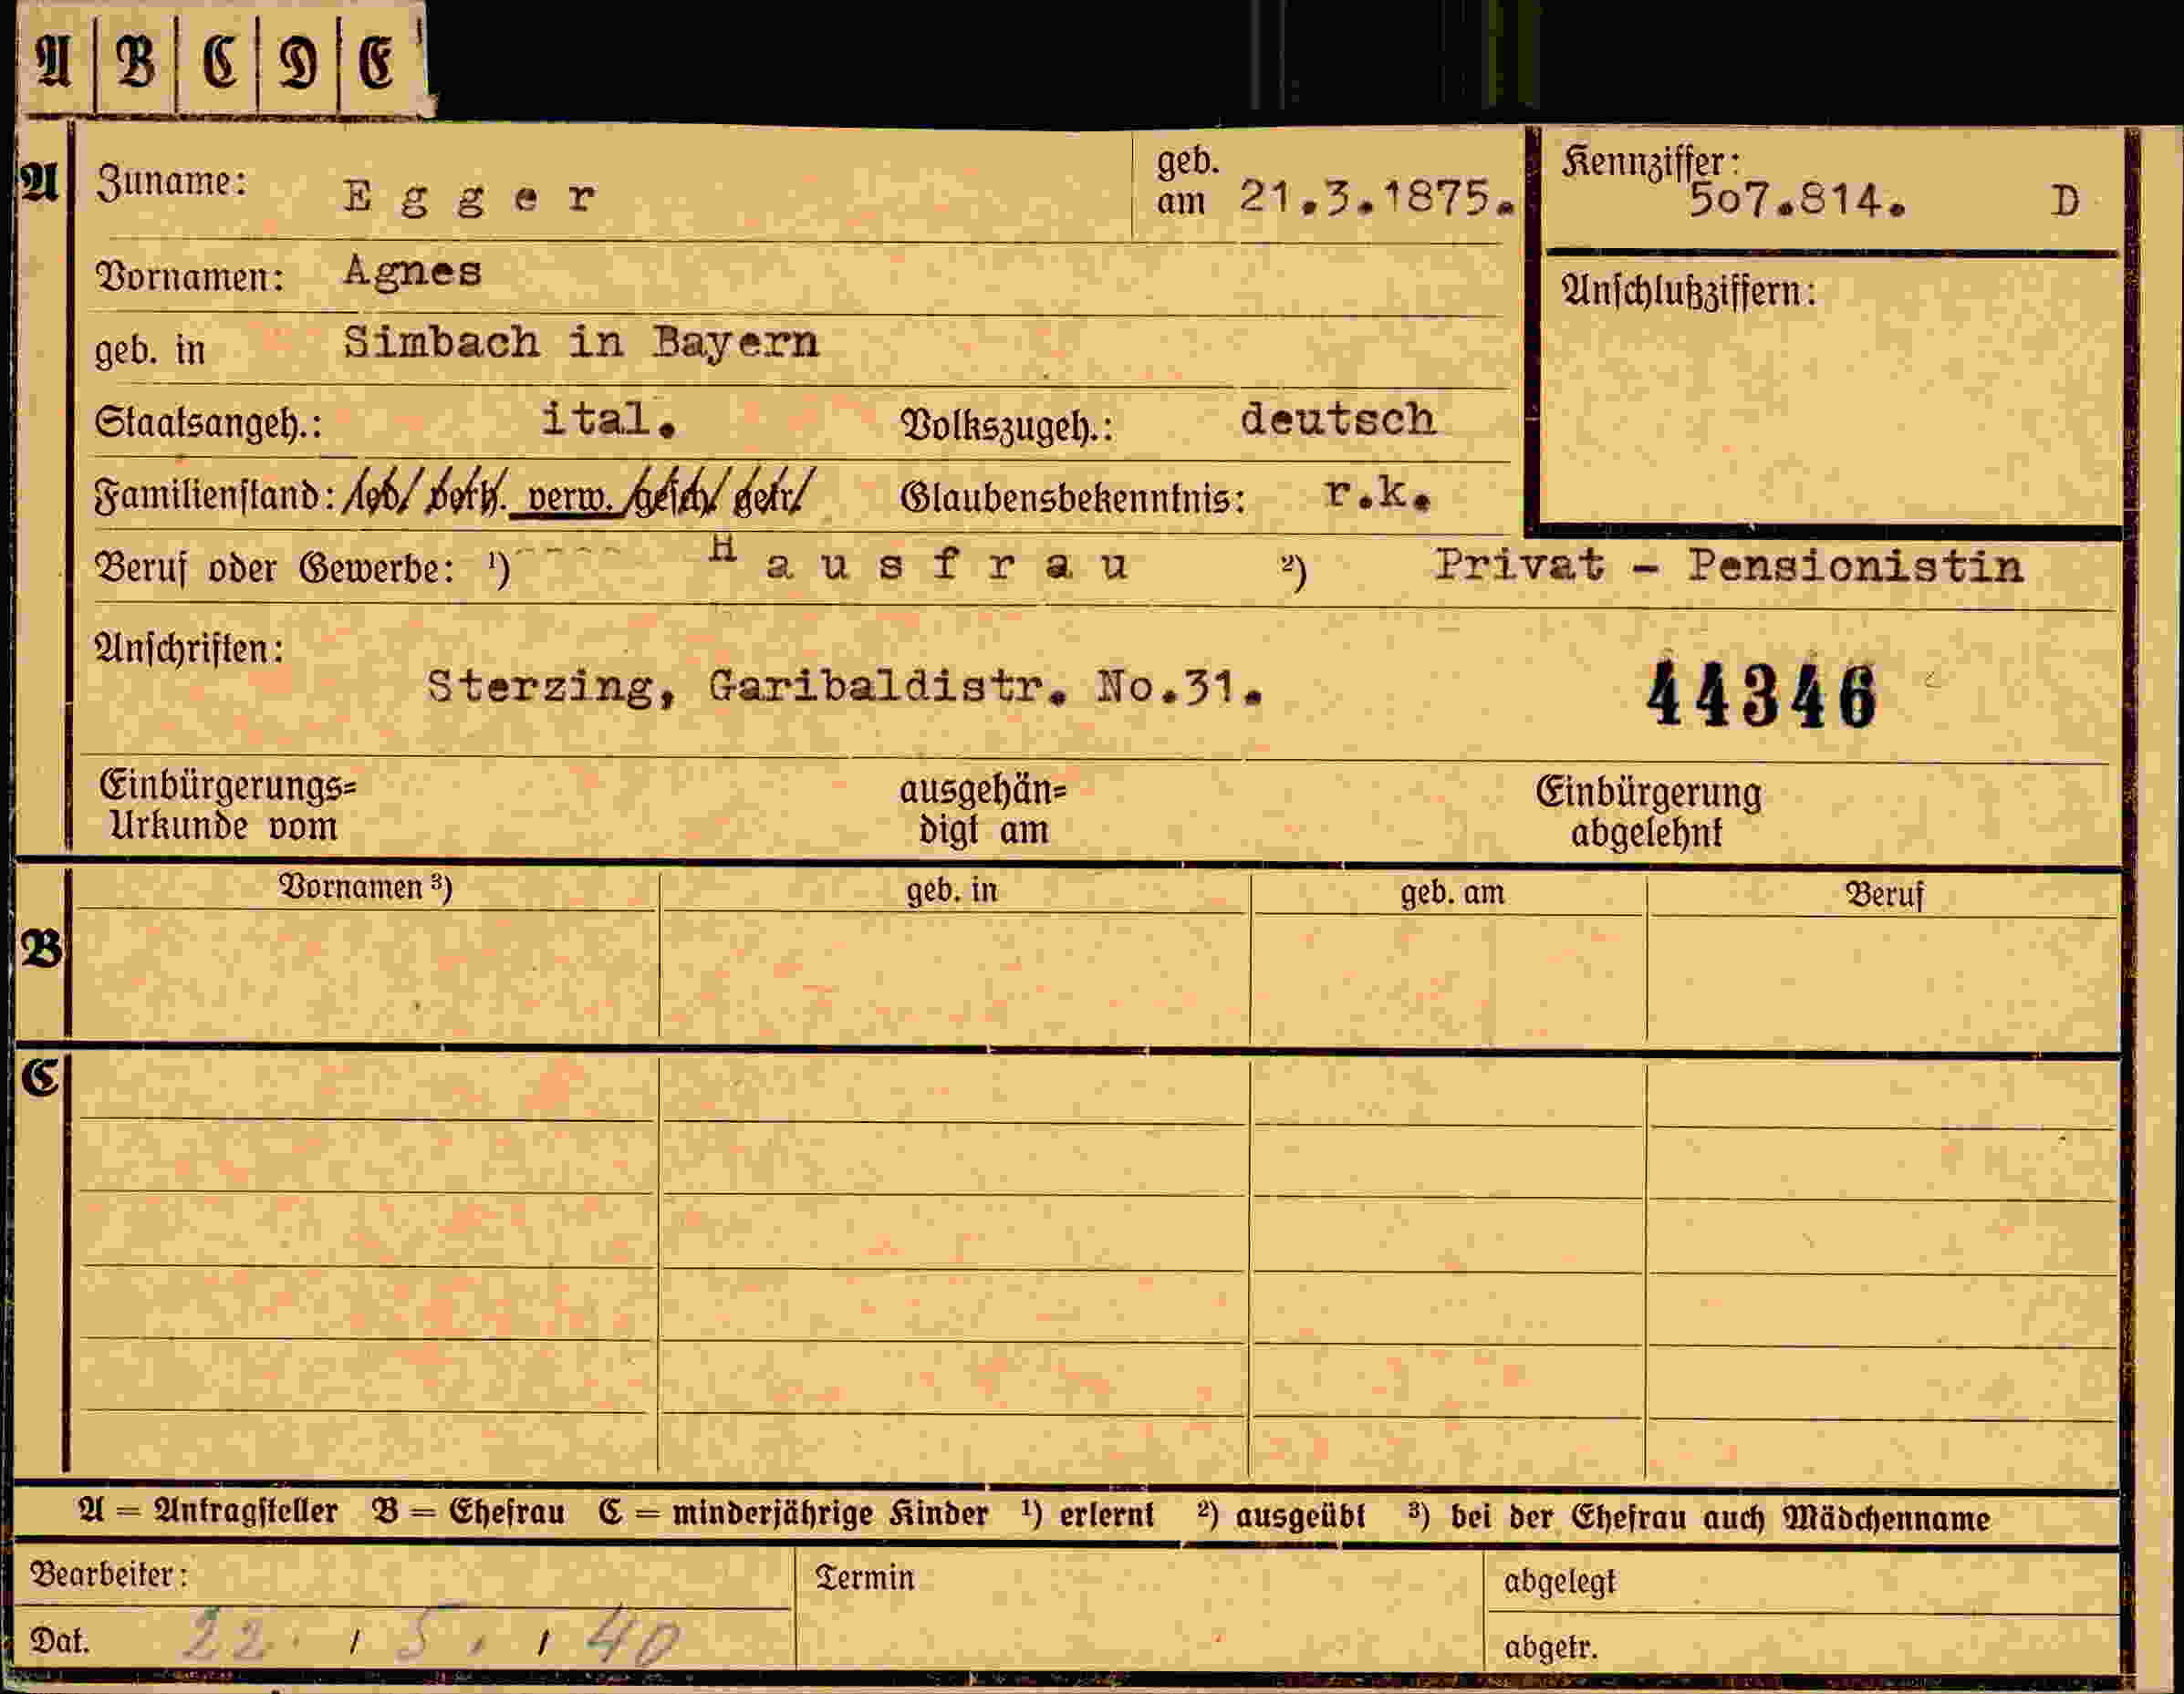 A B C D E
A Zuname: Egger geb. am 21.3.1875. Kennziffer: 507.814. D
Vornamen: Agnes Anschlußziffern:
geb. in Simbach in Bayern
Staatsangeh.: ital. Volkszugeh.: deutsch
Familienstand: led/ verh. verw. gesch/ getr/ Glaubensbekenntnis: r.k.
Beruf oder Gewerbe: ¹) ---- Hausfrau ²) Privat - Pensionistin
Anschriften:
Sterzing, Garibaldistr. No.31. 44346
Einbürgerungs= ausgehän= Einbürgerung
Urkunde vom digt am abgelehnt
Vornamen ³) geb. in geb. am Beruf
B
C
A = Antragsteller B = Ehefrau C = minderjährige Kinder ¹) erlernt ²) ausgeübt ³) bei der Ehefrau auch Mädchenname
Bearbeiter: Termin abgelegt
Dat. 22. / 5. / 40 abgetr.